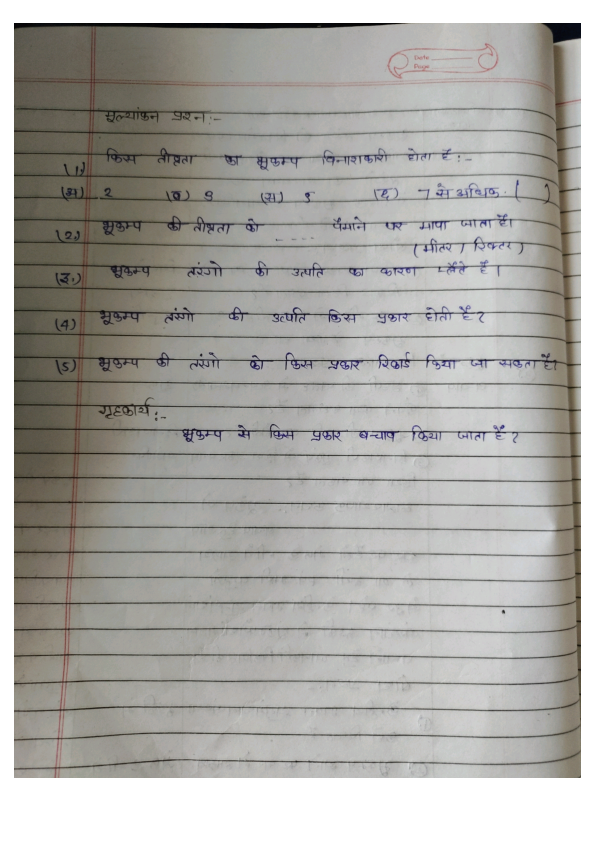 Date
Page
मूल्यांकन प्रश्न:-
(1) किस तीव्रता का भूकम्प विनाशकारी होता है:-
(अ) 2 (ब) (स) (द) 7 से अधिक ( )
(2) भूकम्प की तीव्रता को .... पैमाने पर मापा जाता है।
(मीटर / रिक्टर)
(3.) भूकम्प तरंगो की उत्पति का कारण प्लेंते है।
(4) भूकम्प तंरगो की उत्पति किस प्रकार होती है?
(5) भूकम्प की तरंगो को किस प्रकार रिकार्ड किया जा सकता है।
गृहकार्य:-
भूकम्प से किस प्रकार बचाव किया जाता है?